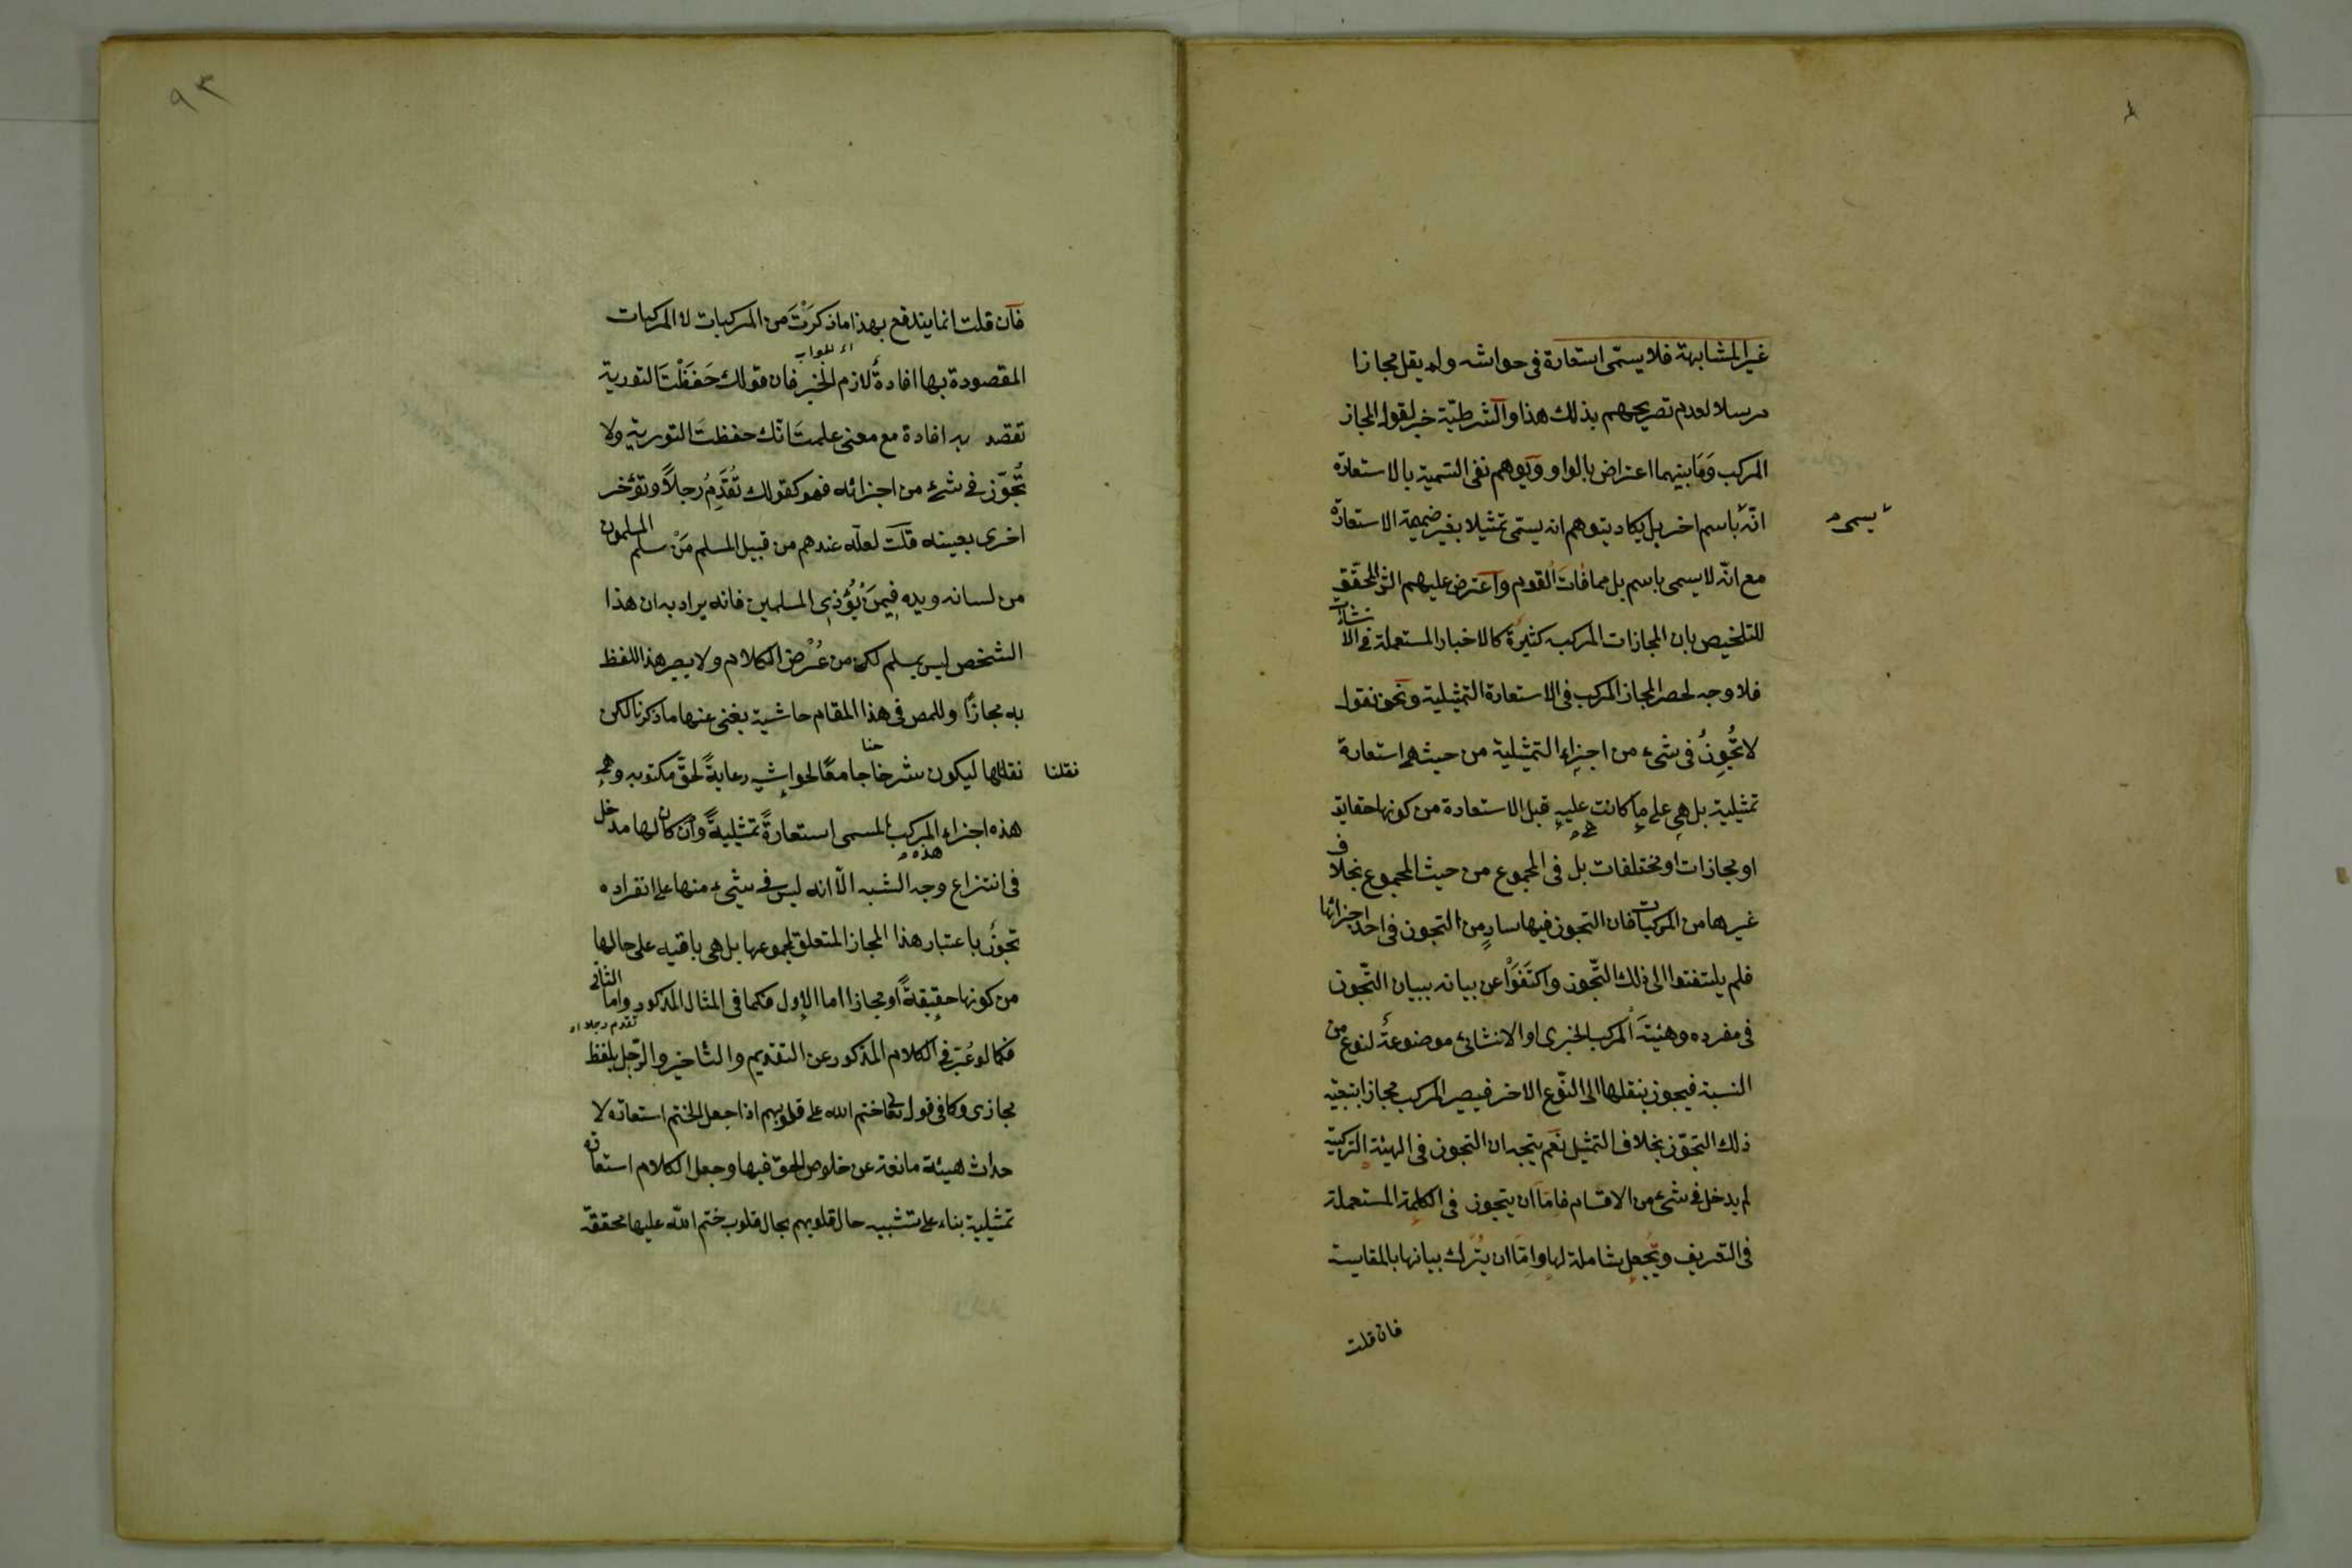 غير المشابهة فلا يسمّى استعارة في حواشيه ولم يقل مجازا
مرسلا لعدم تصريحهم بذلك هذا والشرطيّة خبر لقوله المجاز
المركب وَمَا بينهما اعتراض بالواو ويوهم نفى التسمية بالاستعارة
انّه باسم اخر بل يكاد يتوهم انه يسمّى تمثيلا بغير ضميمة الاستعارة
يسمى
مع انّه لا يسمى باسم بل مما فات القوم واعترض عليهم الش المحقّق
للتلخيص بان المجازات المركبه كثيرة كالاخبار المستعملة فى الانشاآت
فلا وجه لحصر المجاز المركب فى الاستعارة التمثيلية ونحن نقول
لا تَجُّوزُ فى شىء من اجزاء التمثيلية من حيث هى استعارة
تمثيلية بل هى على ما كانت عليه قبل الاستعارة من كونها حقايق
او مجازات او مختلفات بل فى المجموع من حيث المجموع بخلاف
غيرها من المركبات فان التجوز فيها سارٍ من التجوز فى احد اجزائها
فلم يلتفتوا الى ذلك التّجوز واكتفَوْا عن بيانه ببيان التّجوز
فى مفرده وهيئة المركب الخبرى او الانشائى موضوعة لنوع من
النسبة فيجوز بنقلها الى النّوع الاخر فيصير المركب مجازا بتبعيّة
ذلك التجوّز بخلاف التمثيل نعم يتجه ان التجوز فى الهيئة التركبيّة
لم يدخل فى شىء من الاقسام فامّا ان يتجوز فى الكلمة المستعملة
فى التعريف ويُجعل شاملة لها وامّا ان يُترك بيانها بالمقايسة
فان قلت
٩٣
فان قلت انما يندفع بهذا ما ذكرْتَ من المركبات لا المركبات
اى الجواب
المقصودة بها افادةُ لازم الخبر فان قولك حَفَظْتَ التورية
تقصد به افادة مع معنى علمتَ انّك حفظتَ التورية ولا
تُجّوّز فى شىء من اجزائه فهو كقولك تُقَدِّمُ رجلاً وتؤخر
اخرى بعينه قلت لعلّه عندهم من قبيل المسلم مَنْ سلم المسلمون
من لسانه ويده فيمَنْ يُؤذى المسلمين فانه يراد به ان هذا
الشخص ليس بمسلم لكن من عُرْض الكلام ولا يصير هذا اللفظ
به مجازًا وللمص فى هذا المقام حاشية يغنى عنها ما ذكرنا لكن
نقلنا
نقلها ليكون شرحنا جامعًا لحواشيه رعايةً لحقّ مكتوبه وهى
هذه اجزاء المركب المسمى استعارةً تمثيليةً وان كان لها مدخل
هذه
فى انتزاع وجه الشبه الّا انه ليس فى شىء منها على انفراده
تجوّزُ باعتبار هذا المجاز المتعلق بمجموعها بل هى باقيه على حالها
من كونها حقيقةً او مجازا اما الاول فكما فى المثال المذكور واما الثانى
تقدم رجلا اه
فكما لو عُبّر فى الكلام المذكور عن التقديم والتاخير والرّجل بلفظ
مجازى وكا فى قوله تعا ختم الله على قلوبهم اذا جعل الختم استعارة لا
حداث هيئة مانعة عن خلوص الحقّ فيها وجعل الكلام استعارة
تمثيلية بناء على تشبيه حال قلوبهم بحال قلوب ختم الله عليها محققة